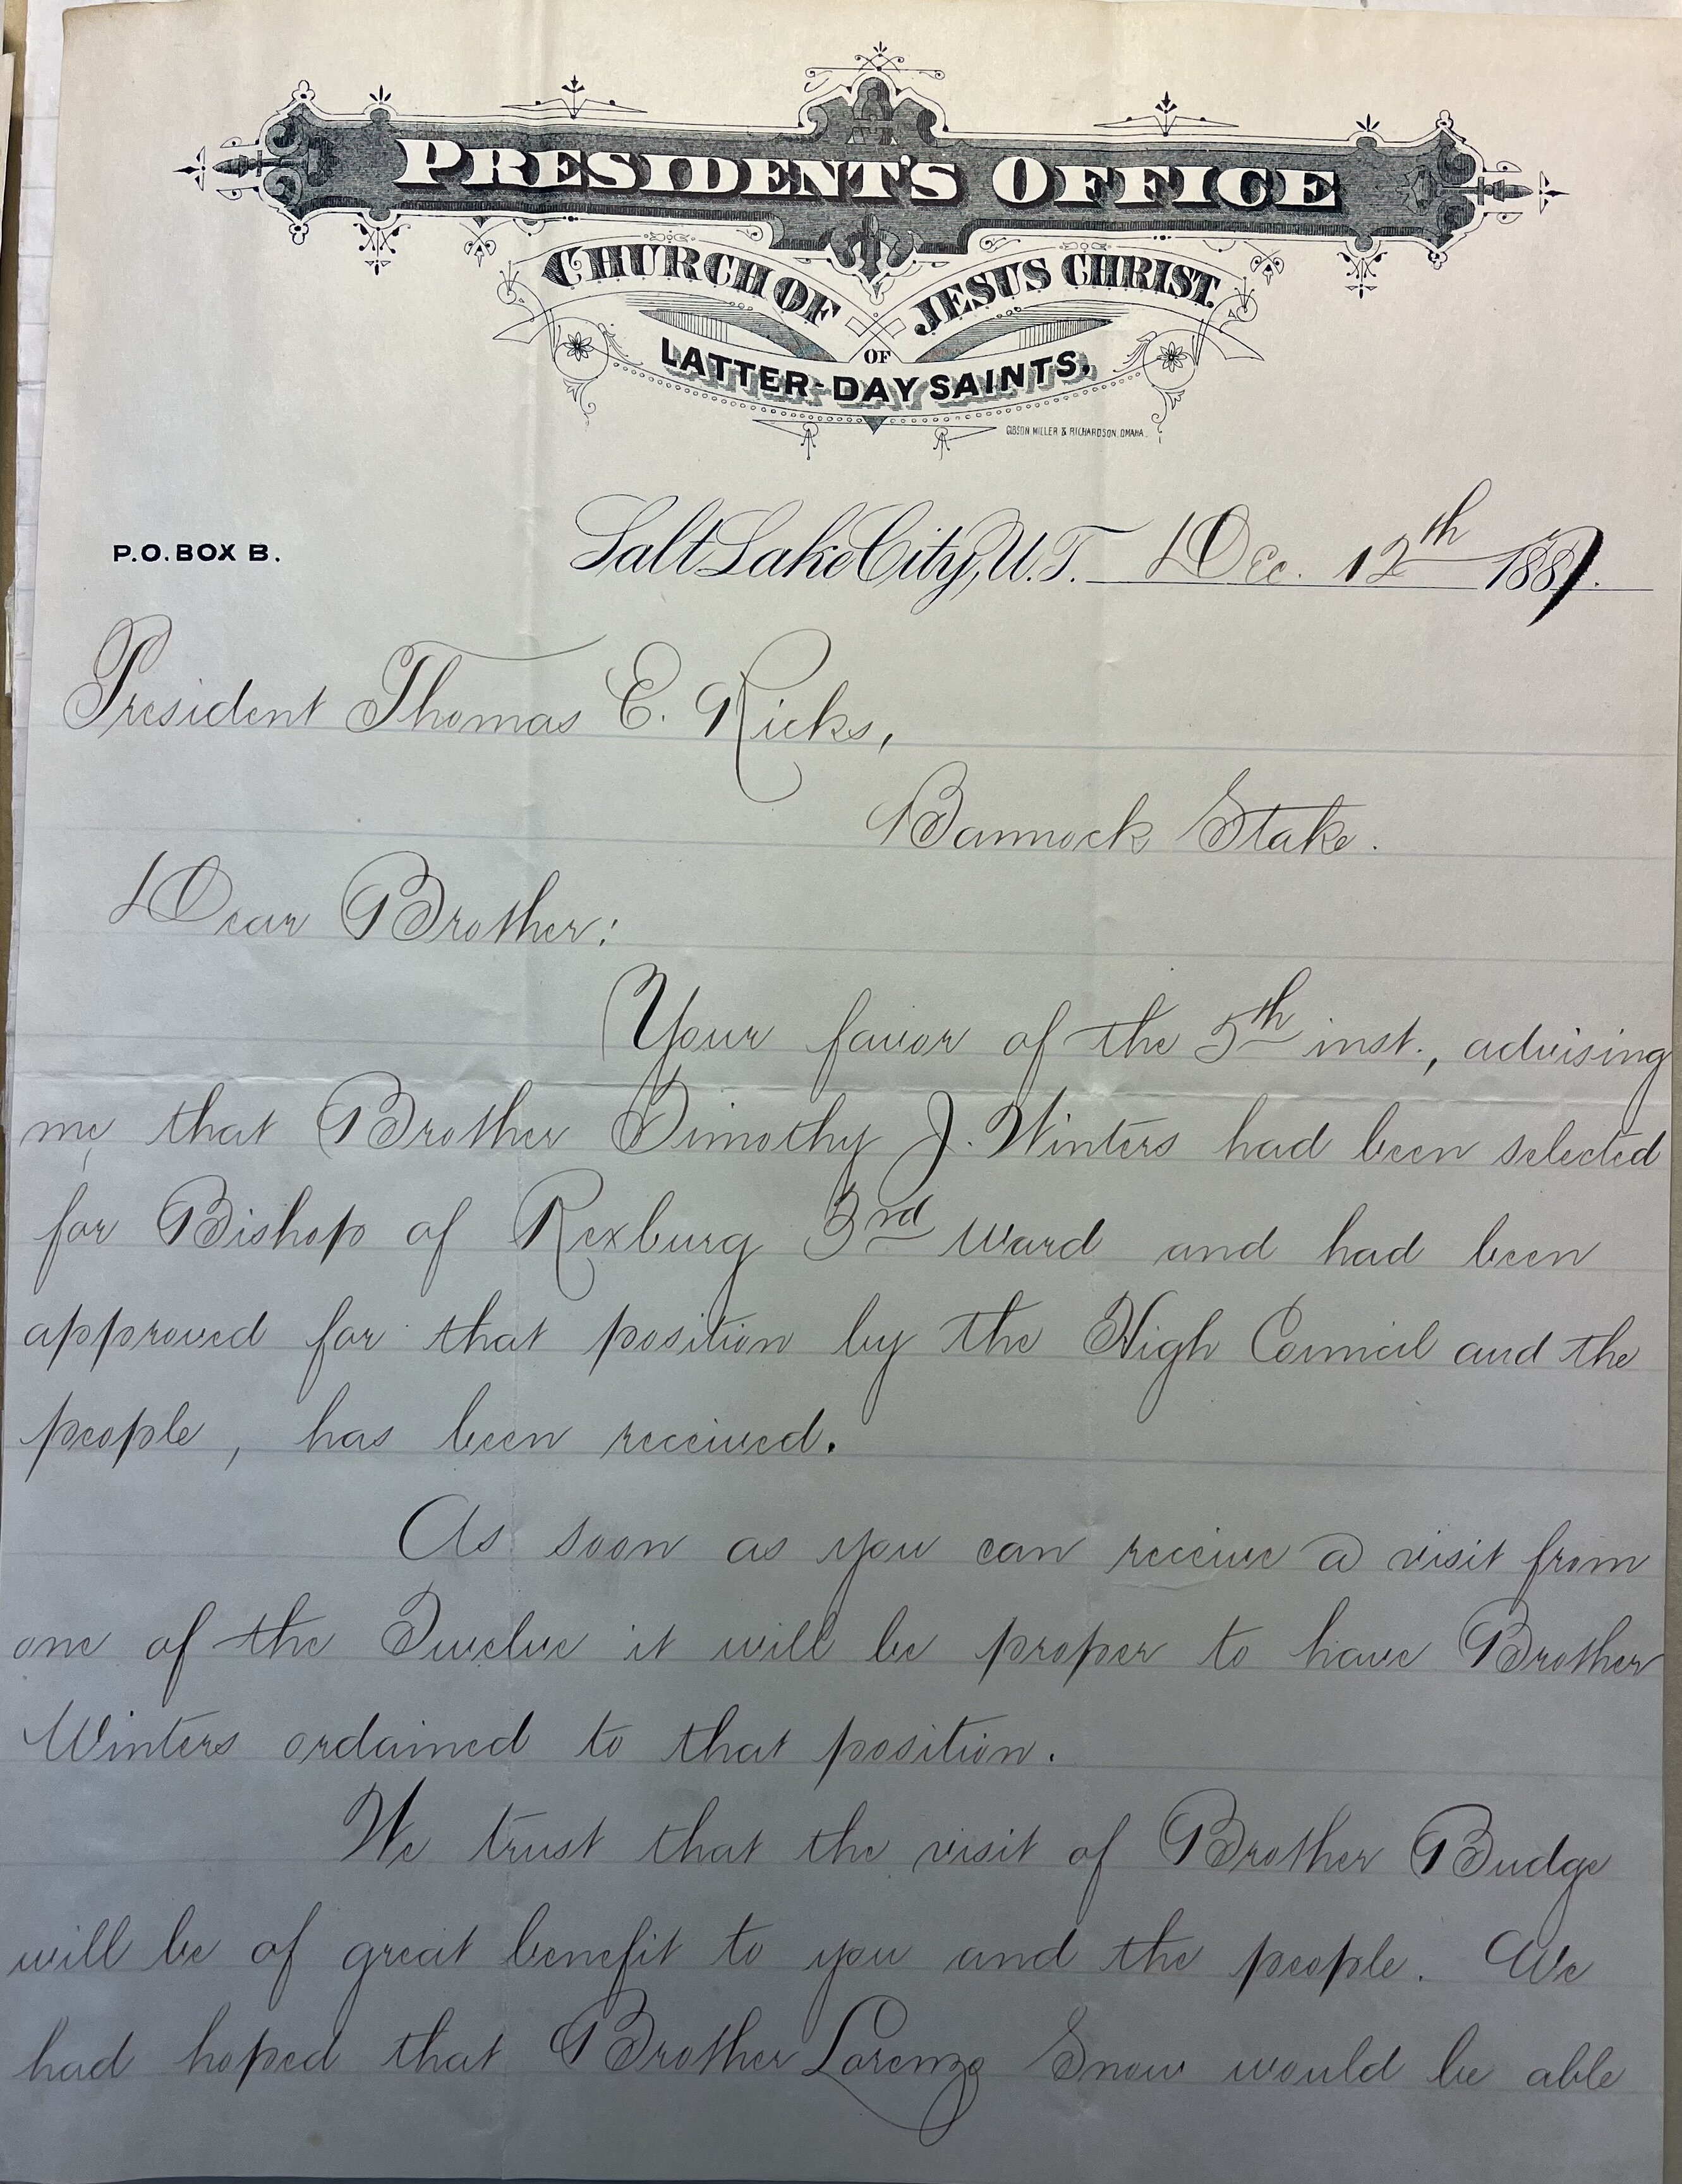 PRESIDENT'S OFFICE
CHURCH OF JESUS CHRIST
OF
LATTER-DAY SAINTS.
GIBSON MILLER & RICHARDSON, OMAHA.
P.O. BOX B.
Salt Lake City, U.T. Dec. 12th 1887.
President Thomas E. Ricks,
Bannock Stake.
Dear Brother:
Your favor of the 5th inst., advising
me, that Brother Timothy J. Winters had been selected
for Bishop of Rexburg 3rd Ward and had been
approved for that position by the High Council and the
people, has been received.
As soon as you can receive a visit from
one of the Twelve it will be proper to have Brother
Winters ordained to that position.
We trust that the visit of Brother Budge
will be of great benefit to you and the people. We
had hoped that Brother Lorenzo Snow would be able